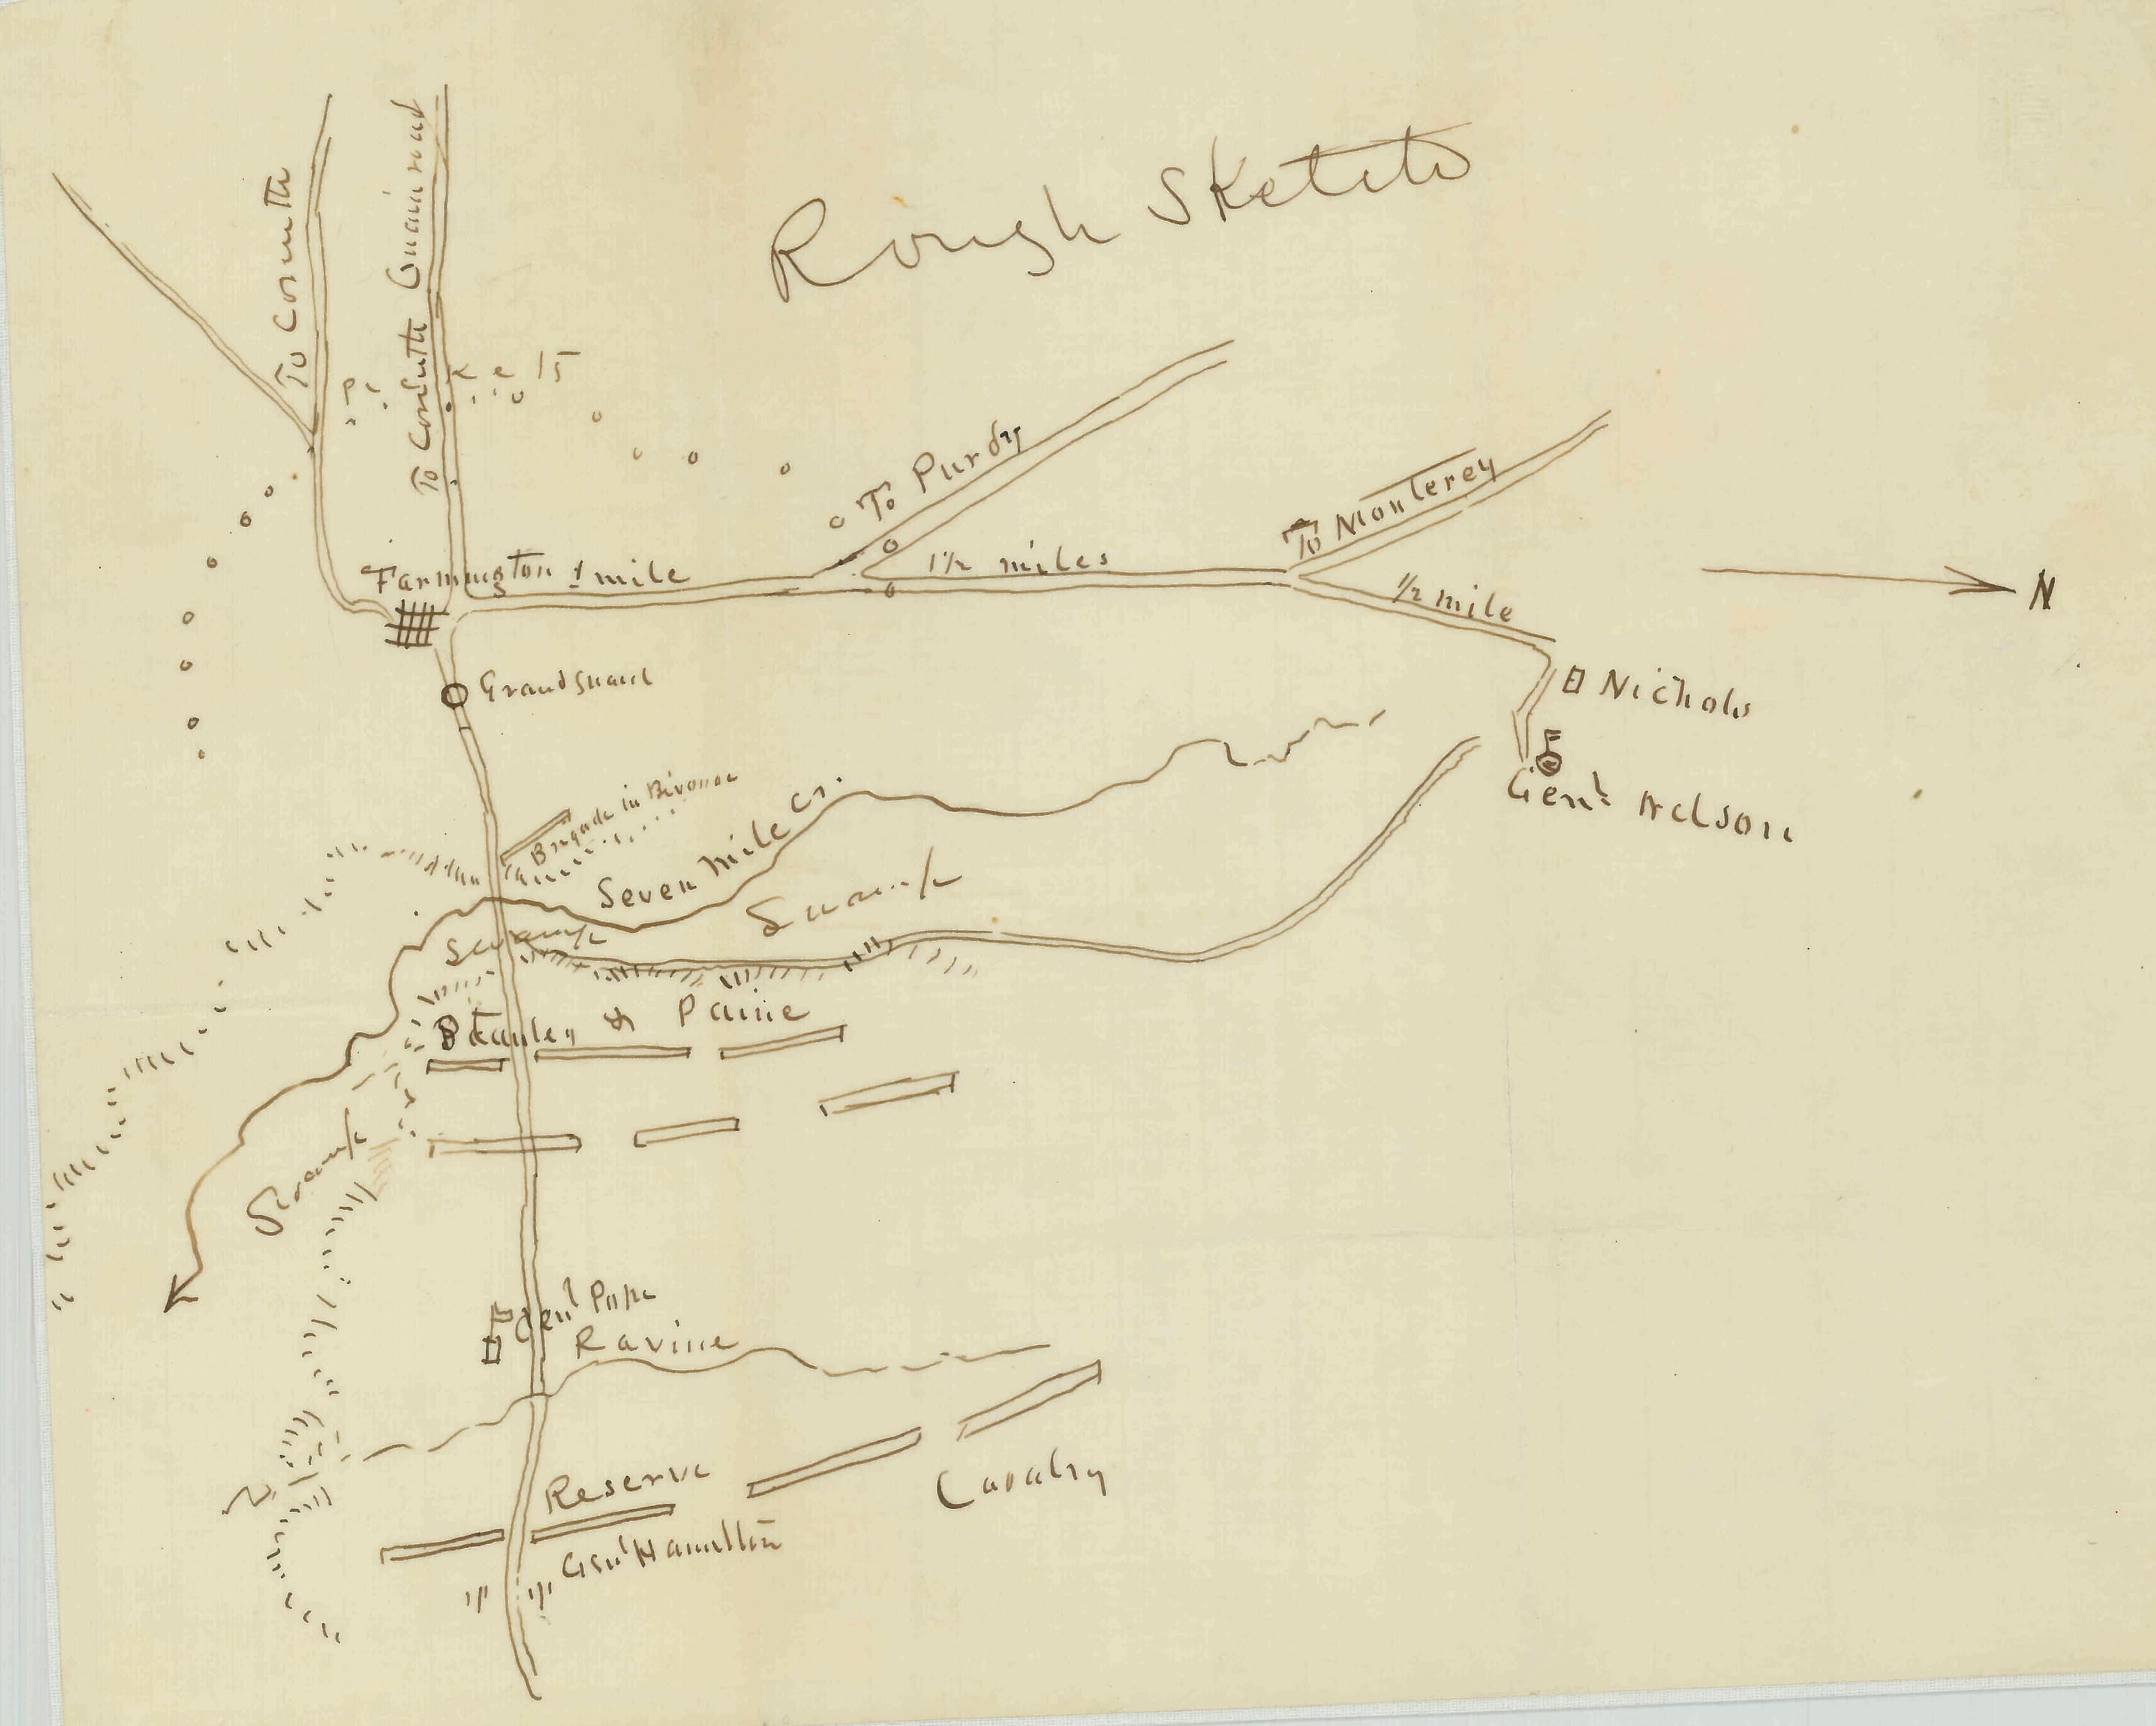 Rough Sketch
To Corinth
To Corinth Main road
Pickets
To Purdy
To Monterey
Farmington 1 mile
1 1/2 miles
1/2 mile
N
Nichols
Grand guard
Genl. Nelson
Brigade in Bivouac
Seven Mile Cr.
Swamp
Swamp
Stanley & Paine
Swamp
Genl Pope
Ravine
Reserve
Cavalry
Genl Hamilton